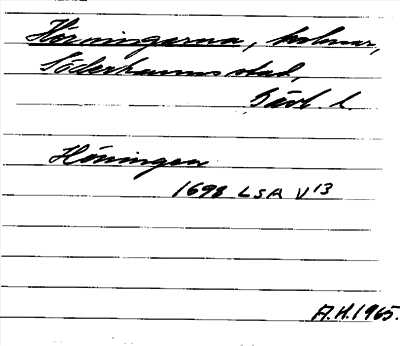 Horningarna, holmar,
Söderhamns stad,
Gävl. l.
Horningen
1698 LSA V 13
A.H. 1965.